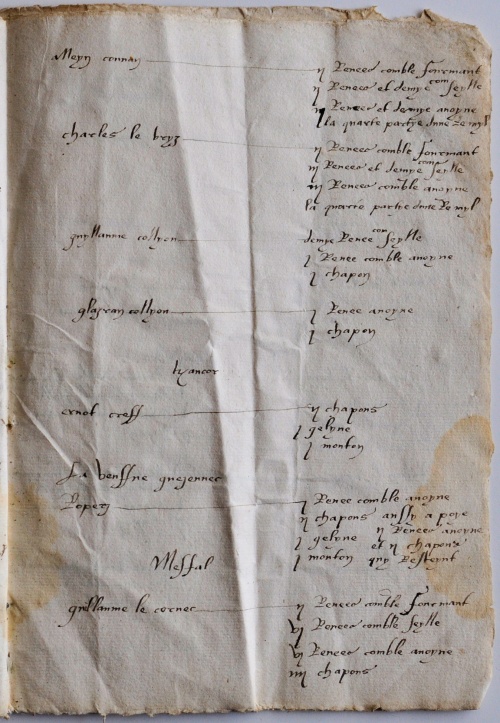 Meyn connan ij Renees comble fourmant
ij Renees et demye com seylle
ij Renees et demye avoyne
la quarte partye dune Re myl
charles le bryz ij Renees comble fourmant
iij Renees et demye comb seylle
iij Renees comble avoyne
la quarte partye dune Re myl
guyllaume collyou demye Renee com seylle
j Renee comble avoyne
j chapon
glazran collyou j Renee avoyne
j chapon
ernot creff ij chapons
j gelyne
j mouton
La veuffve
j Renee comble avoyne
ij chapons aussy a poye
j gelyne ij Renees avoyne
et ij chapons
j mouton quy Resteynt
Mesfal
guillaume le cornec ij Renees comble fourmant
vj Renees comble seylle
vj Renees comble avoyne
iiij chapons